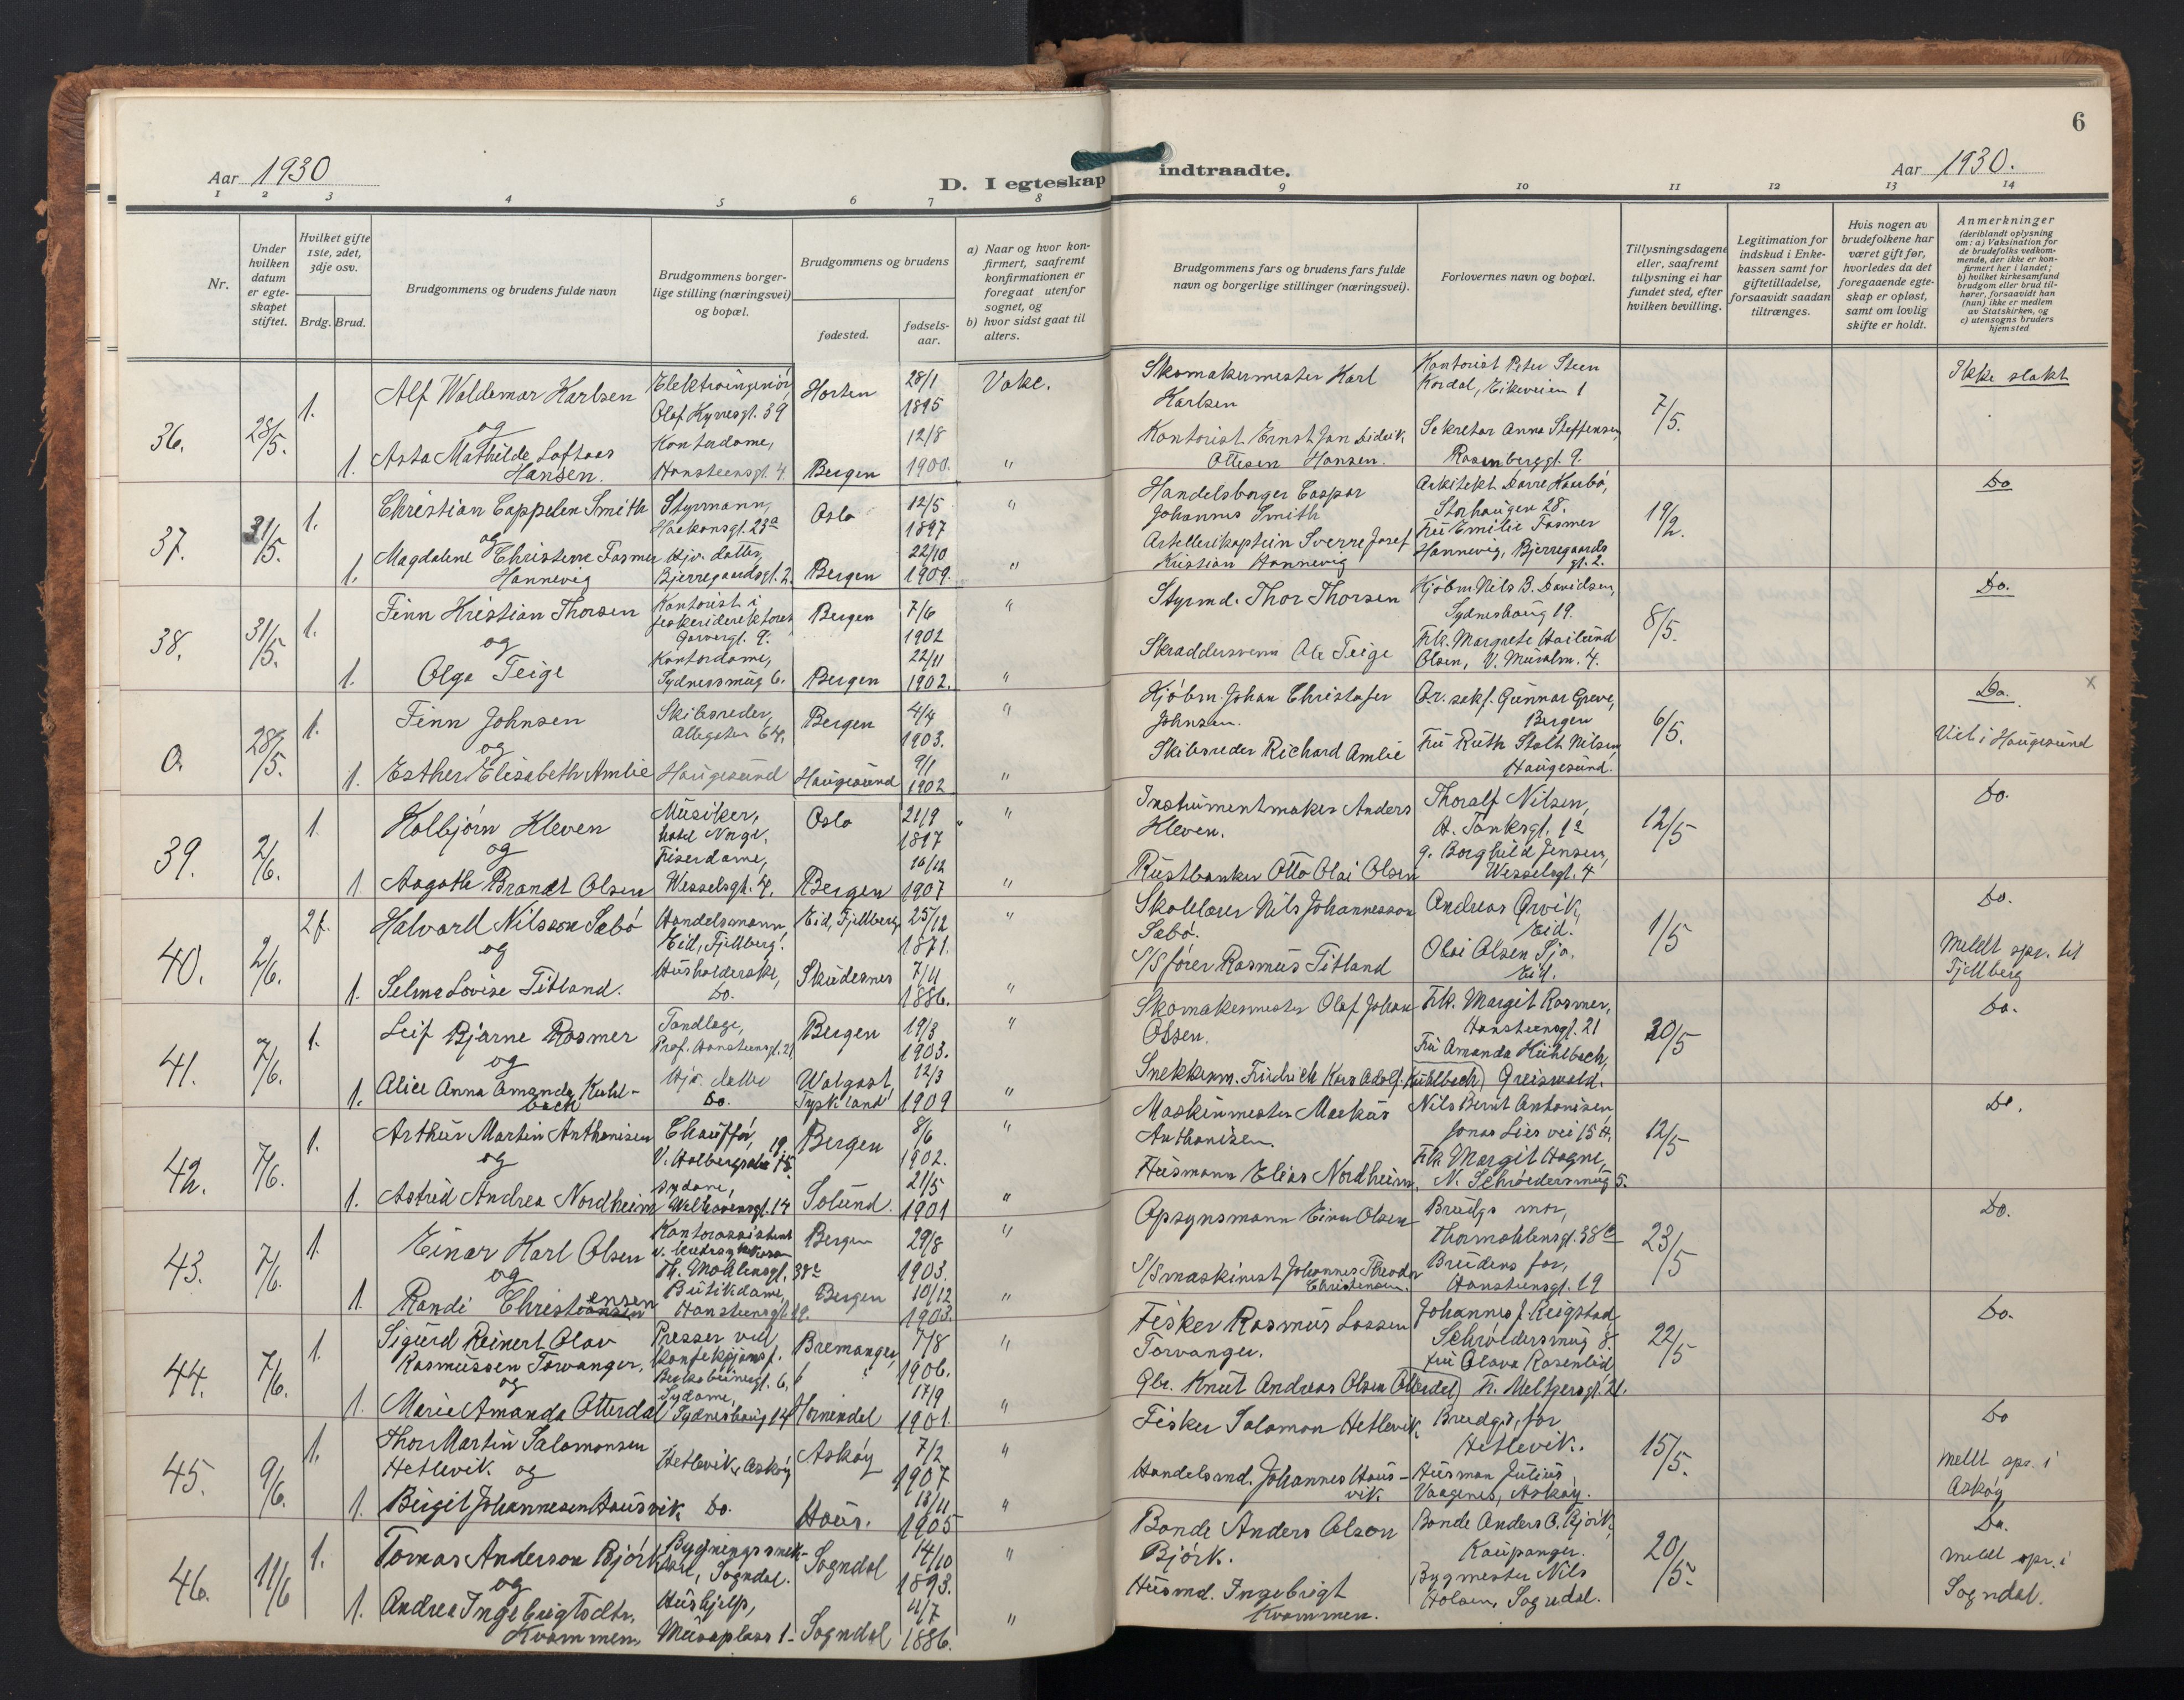 6
Aar 1930
D. I egteskap indtraadte.
Aar 1930.
1 2 3 4 5 6 7 8 9 10 11 12 13 14
Nr.
Under hvilken datum er egteskapet stiftet.
Hvilket gifte 1ste, 2det, 3dje osv.
Brdg. Brud.
Brudgommens og brudens fulde navn
Brudgommens borgerlige stilling (næringsvei) og bopæl.
Brudgommens og brudens
fødested.
fødselsaar.
a) Naar og hvor konfirmert, saafremt konfirmationen er foregaat utenfor sognet, og
b) hvor sidst gaat til alters.
Brudgommens fars og brudens fars fulde navn og borgerlige stillinger (næringsvei).
Forlovernes navn og bopæl.
Tillysningsdagene eller, saafremt tillysning ei har fundet sted, efter hvilken bevilling.
Legitimation for indskud i Enkekassen samt for giftetilladelse, forsaavidt saadan tiltrænges.
Hvis nogen av brudefolkene har været gift før, hvorledes da det foregaaende egteskap er opløst, samt om lovlig skifte er holdt.
Anmerkninger
(deriblandt oplysning om: a) Vaksination for de brudefolks vedkommende, der ikke er konfirmert her i landet; b) hvilket kirkesamfund brudgom eller brud tilhører, forsaavidt han (hun) ikke er medlem av Statskirken, og c) utensogns bruders hjemsted
36. 28/5. 1. Alf Waldemar Karlsen
og
1. Asta Mathilde Loftaas Hansen.
Elektroingeniør, Olaf Kyrresgt. 39
Kontordame, Hansteensgt. 4
Horten 28/1 1895 Vake.
Bergen 12/8 1900. "
Skomakermester Karl Karlsen
Kontorist Ernst Jan Didrik Ottesen Hansen.
Kontorist Peter Steen Kordal, Eikeveien 1
Sekretær Anna Steffensen, Rosenberggt. 9.
7/5. Ikke slekt
37. 31/5. 1. Christian Cappelen Smith
og
1. Magdalene Christerne Fasmer Hannevig
Styrmann, Haakonsgt. 23a
Hjv. datter, Bjerregaardsgt. 2.
Oslo 12/5 1897 "
Bergen 22/10 1909. "
Handelsborger Caspar Johannes Smith
Artillerikaptein Sverre Josef Kristian Hannevig
Arkitekt Darre Kaarbø, Storhaugen 28.
Frü Emilie Fasmer Hannevig, Bjerregaards gt. 2.
19/2. Do
38. 31/5. 1. Finn Kristian Thorsen
og
1. Olga Teige
Kontorist i fiskeridirektoret, Garvergt. 9.
Kontordame, Sydnessmug 6.
Bergen 7/6 1902 "
Bergen 22/11 1902. "
Styrmd. Thor Thorsen
Skraddersvenn Ole Teige
Kjøbm. Nils B. Davidsen, Sydneshaug 19.
Frk. Margrete Olsen, V. Muralm. 4.
8/5. Do.
0. 28/5. 1. Finn Johnsen
og
1. Esther Elisabeth Amlie
Skibsreder, Allegaten 64.
Haugesund
Bergen 4/4 1903. "
Haugesund 9/1 1902 "
Kjøbm. Johan Christofer Johnsen.
Skibsreder Richard Amlie
O.r. sakf. Gunnar Greve, Bergen
Frü Ruth Stolt Nilsen, Haugesund.
6/5. Do. x
Viet i Haugesund
39. 2/6. 1. Kolbjørn Kleven
og
1. Aagoth Brandt Olsen
Musiker, hotel Norge.
Friserdame, Wesselsgt. 4.
Oslo 21/9 1897 "
Bergen 16/12 1907 "
Instrumentmaker Anders Kleven.
Rustbanker Otto Olai Olsen
Thoralf Nilsen, A. Tanksgt. 1a
g. Borghild Jensen, Wesselsgt. 4
12/5 Do.
40. 2/6. 2f. Halvard Nilsson Sæbø
og
1. Selma Lovise Titland.
Handelsmann, Eid, Fjellberg.
Husholderske, Do.
Eid, Fjellberg 25/12 1871. "
Skudesnes 7/11 1886. "
Skolelærer Nils Johannesson Sæbø.
S/S fører Rasmus Titland
Andreas Ørvik, Eid.
Olai Olsen Sjo. Eid.
1/5 Do.
Meldt spr. til Fjellberg
41. 7/6. 1. Leif Bjarne Rosmer
og
1. Alice Anna Amanda Kuhlbach
Tandlege, Prof. Hansteensgt. 21
Hjv. datter Do.
Bergen 19/3 1903. "
Wolgast, Tyskland 12/3 1909 "
Skomakermester Olaf Johan Olsen.
Snekkerm. Friedrich Karo Adolf Kuhlbach
Frk. Margit Rosmer, Hansteensgt. 21
Frü Amanda Kühlbach, Greiswald.
20/5 Do.
42. 7/6. 1. Arthur Martin Anthonisen
og
1. Astrid Andrea Nordheim
Chauffør, V. Holbergsalm. 19
Sydame, Welhavensgt. 14
Bergen 8/6 1902. "
Solund. 21/5 1901 "
Maskinmester Markus Anthonisen.
Husmann Elias Nordheim.
Nils Bernt Antonisen, Jonas Lies vei 15 A.
Frk. Margit Hogne, N. Schrødersmug 5.
12/5 Do.
43. 7/6. 1. Einar Karl Olsen
og
1. Randi Christensen
Kontorassistent
Th. Mohlensgt. 38c
Butikdame, Hansteensgt. 19.
Bergen 29/8 1903. "
Bergen 10/12 1903. "
Opsynsmann Einar Olsen
S/S maskinist Johannes Theodor Christensen.
Brudgs mor, Thormøhlensgt. 38c
Brudens far, Hansteensgt. 19
23/5 Do.
44. 7/6. 1. Sigurd Reinert Olav Rasmussen Torvanger.
og
1. Marie Amanda Otterdal
Presser ved konfeksjonsf.
Sydame, Sydneshaug 14
Bremanger, 7/8 1906. "
Hornindal 17/9 1901. "
Fisker Rasmus Lassen Torvanger.
Gbr. Knut Andreas Olsen Otterdal
Johannes J. Reigstad, Schrødersmug 8.
Frü Olava Rosenlid, H. Meltzersgt. 21.
22/5 Do.
45. 9/6. 1. Thor Martin Salamonsen Hetlevik og
1. Birgit Johannesen Hausvik
Hetlevik, Askøy
Do.
Askøy 7/2 1907 "
Haus. 13/11 1905 "
Fisker Salamon Hetlevik
Handelsmd. Johannes Hausvik
Brudgs. far Hetlevik.
Husman Julius Vaagenes, Askøy.
15/5. Do
Meldt spr. i Askøy
46. 11/6 1. Tomas Anderson Bjørk
og
1. Andrea Ingebrigtsdtr. Kvammen.
Bygningssnekker, Sogndal.
Hushjelp, Museplass 1
Sogndal 14/10 1893. "
Sogndal 4/7 1886. "
Bonde Anders Olson Bjørk.
Husmd. Ingebrigt Kvammen.
Bonde Anders O. Bjørk, Kaupanger.
Bygmester Nils Holsen, Sogndal.
20/5. Do.
Meldt spr. i Sogndal.